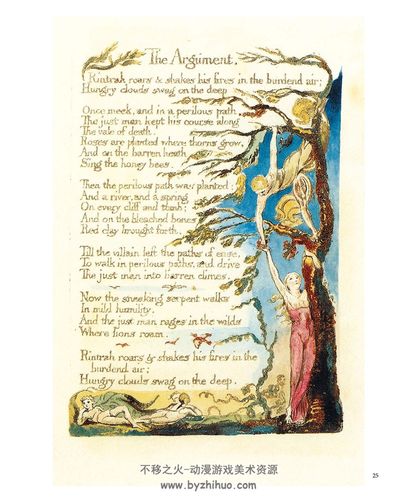 The Argument.
Rintrah roars & shakes his fires in the burdend air;
Hungry clouds swag on the deep
Once meek, and in a perilous path,
The just man kept his course along
The vale of death.
Roses are planted where thorns grow,
And on the barren heath
Sing the honey bees.
Then the perilous path was planted:
And a river, and a spring
On every cliff and tomb;
And on the bleached bones
Red clay brought forth.
Till the villain left the paths of ease,
To walk in perilous paths, and drive
The just man into barren climes.
Now the sneaking serpent walks
In mild humility.
And the just man rages in the wilds
Where lions roam.
Rintrah roars & shakes his fires in the
burdend air;
Hungry clouds swag on the deep.
25
不移之火-动漫游戏美术资源
www.byzhihuo.com